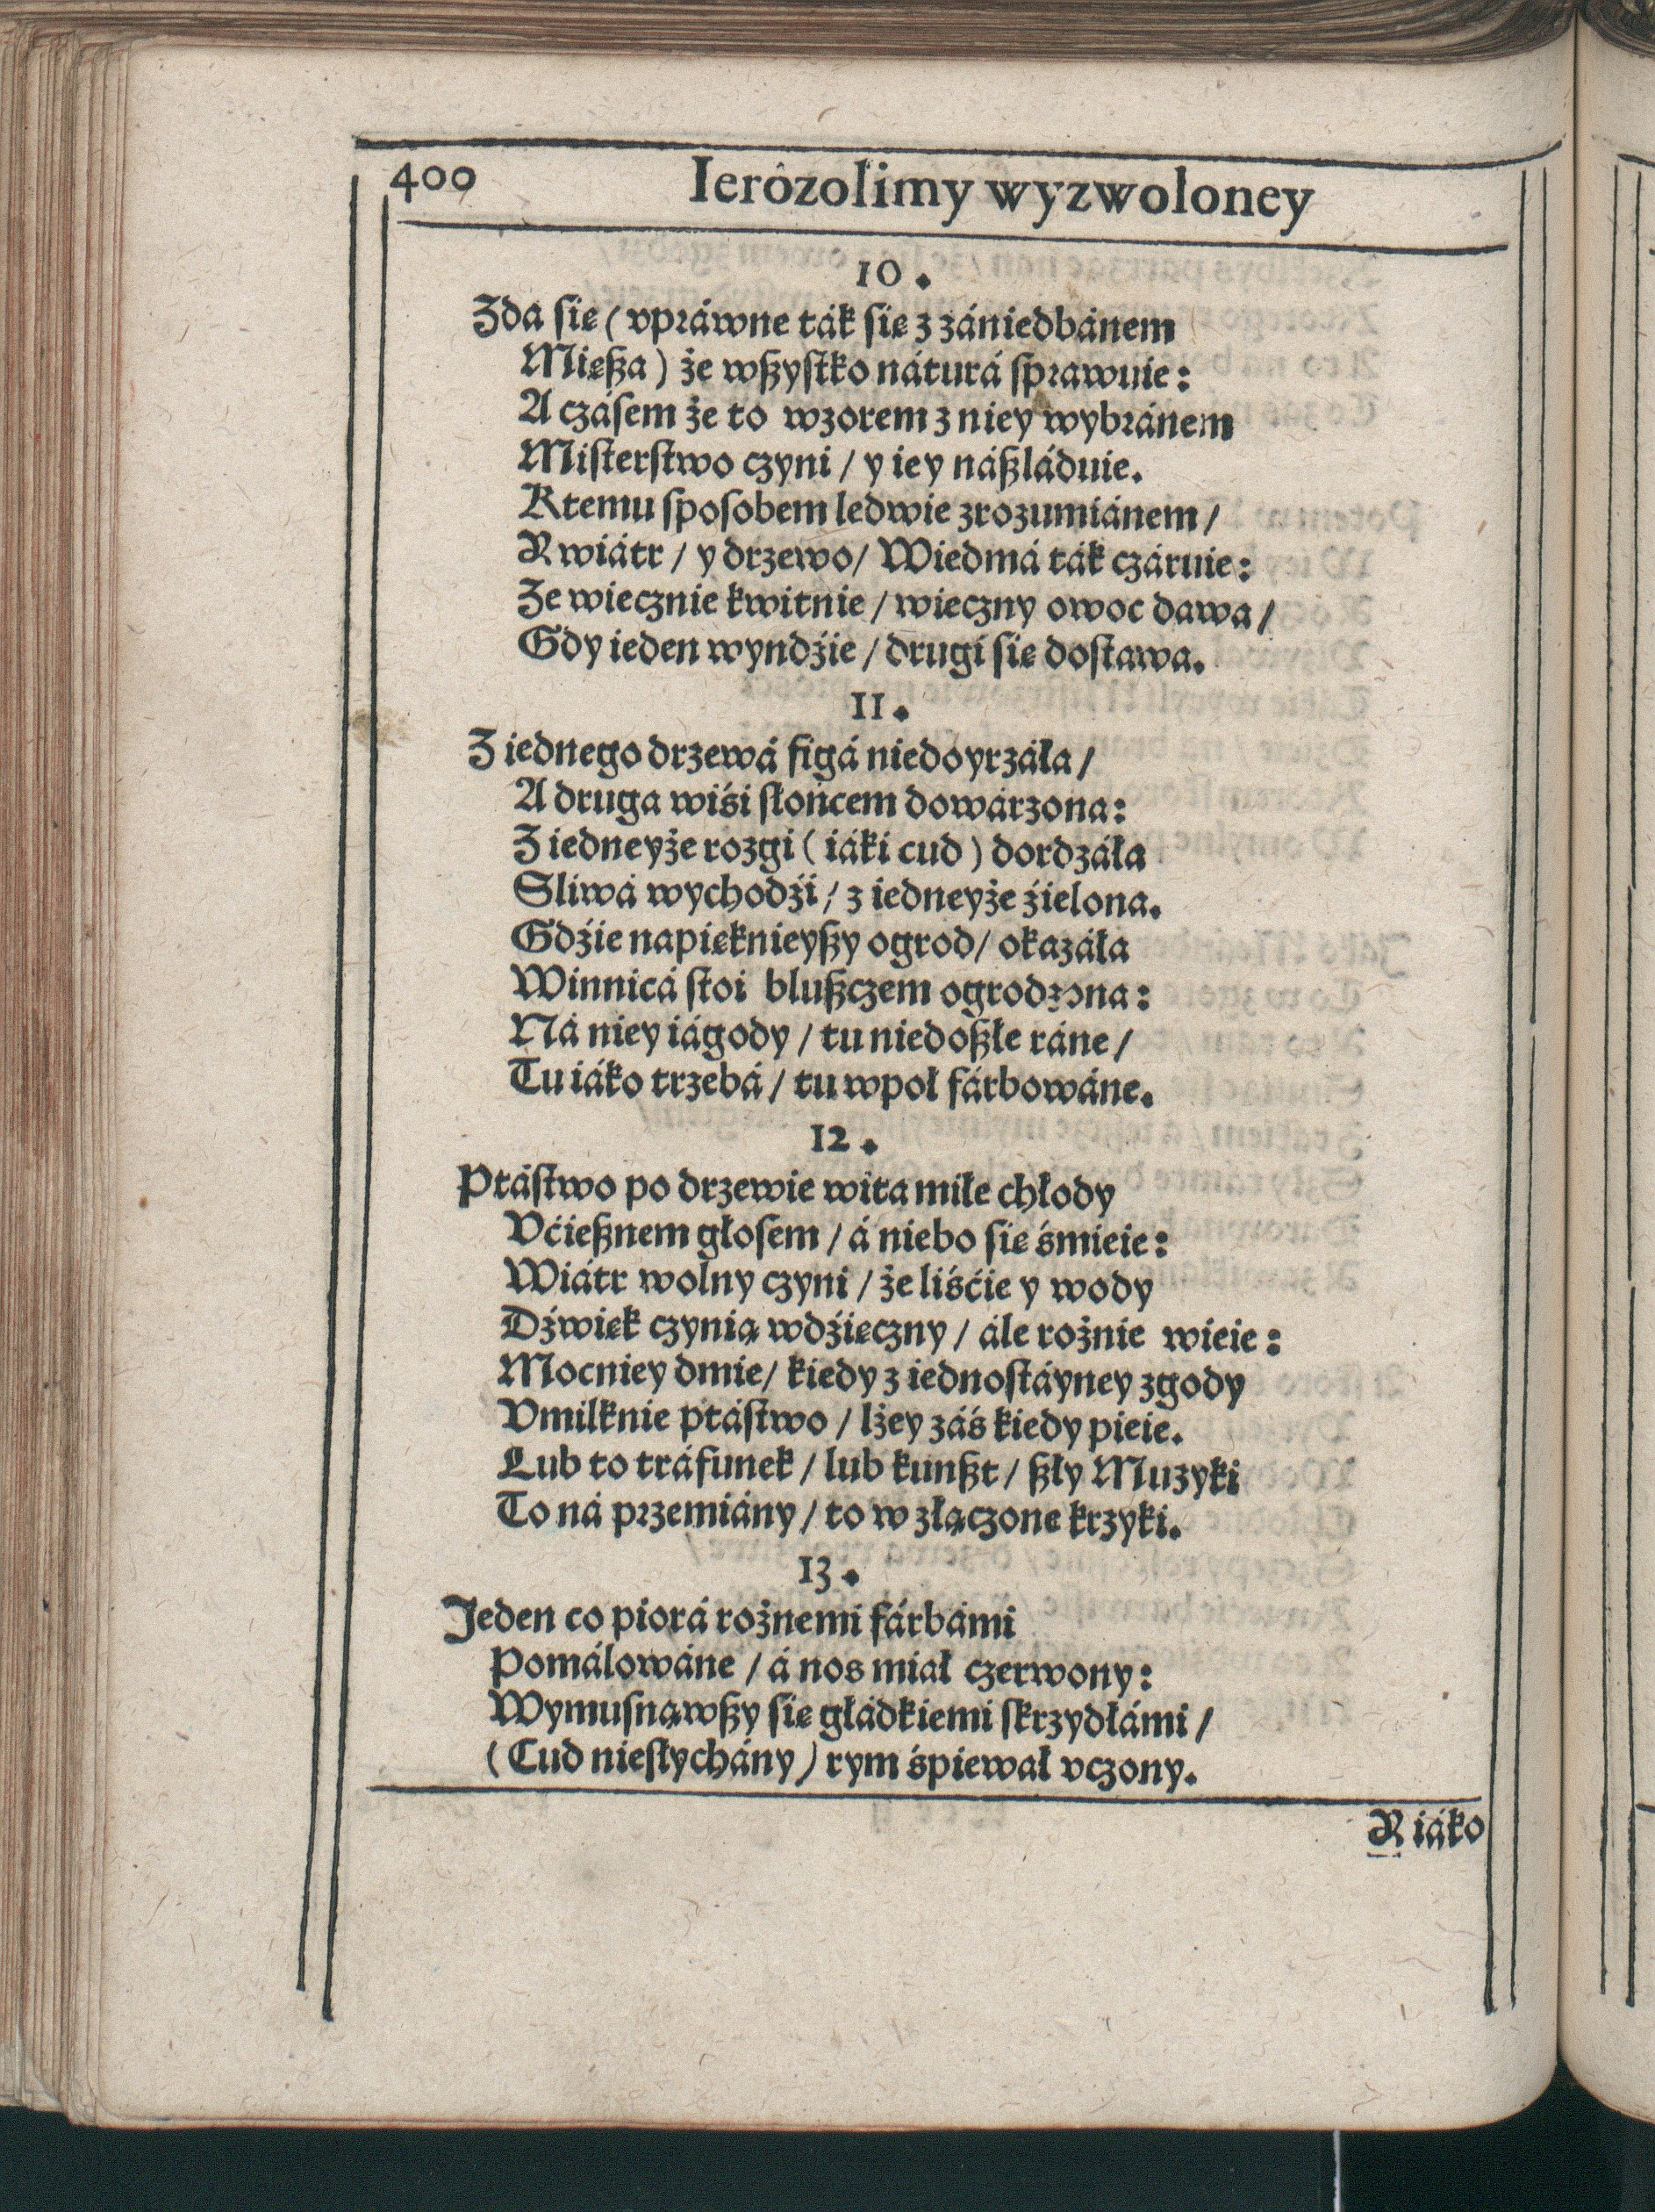 400 Ierozolimy wyzwoloney
10.
Zda się (vpráwne ták się z zániedbánem
Mięsza) że wszystko náturá sprawuie:
A czásem że to wzorem z niey wybránem
Misterstwo czyni / y iey nászláduie.
Ktemu sposobem ledwie zrozumiánem /
K wiátr / y drzewo / Wiedmá ták czáruie:
Ze wiecznie kwitnie / wieczny owoc dawa /
Gdy ieden wyndźie / drugi się dostawa.
11.
Z iednego drzewá figá niedoyrzáła /
A druga wiśi słońcem dowárzona:
Z iedneyże rozgi (iáki cud) dordzáła
Sliwá wychodźi / z iedneyże źielona.
Gdźie napięknieyszy ogrod / okazáła
Winnicá stoi bluszczem ogrodzona:
Ná niey iágody / tu niedoszłe ráne /
Tu iáko trzebá / tu wpoł fárbowáne.
12.
Ptástwo po drzewie wita miłe chłody
Vćiesznem głosem / á niebo się śmieie:
Wiátr wolny czyni / że liśćie y wody
Dźwięk czynią wdźięczny / ále rożnie wieie:
Mocniey dmie / kiedy z iednostáyney zgody
Vmilknie ptástwo / lżey záś kiedy pieie.
Lub to tráfunek / lub kunszt / szły Muzyki
To ná przemiány / to w złączone krzyki.
13.
Jeden co piorá rożnemi fárbámi
Pomálowáne / á nos miał czerwony:
Wymusnąwszy się głádkiemi skrzydłámi /
(Cud niesłychány) rym śpiewał vczony.
K iáko